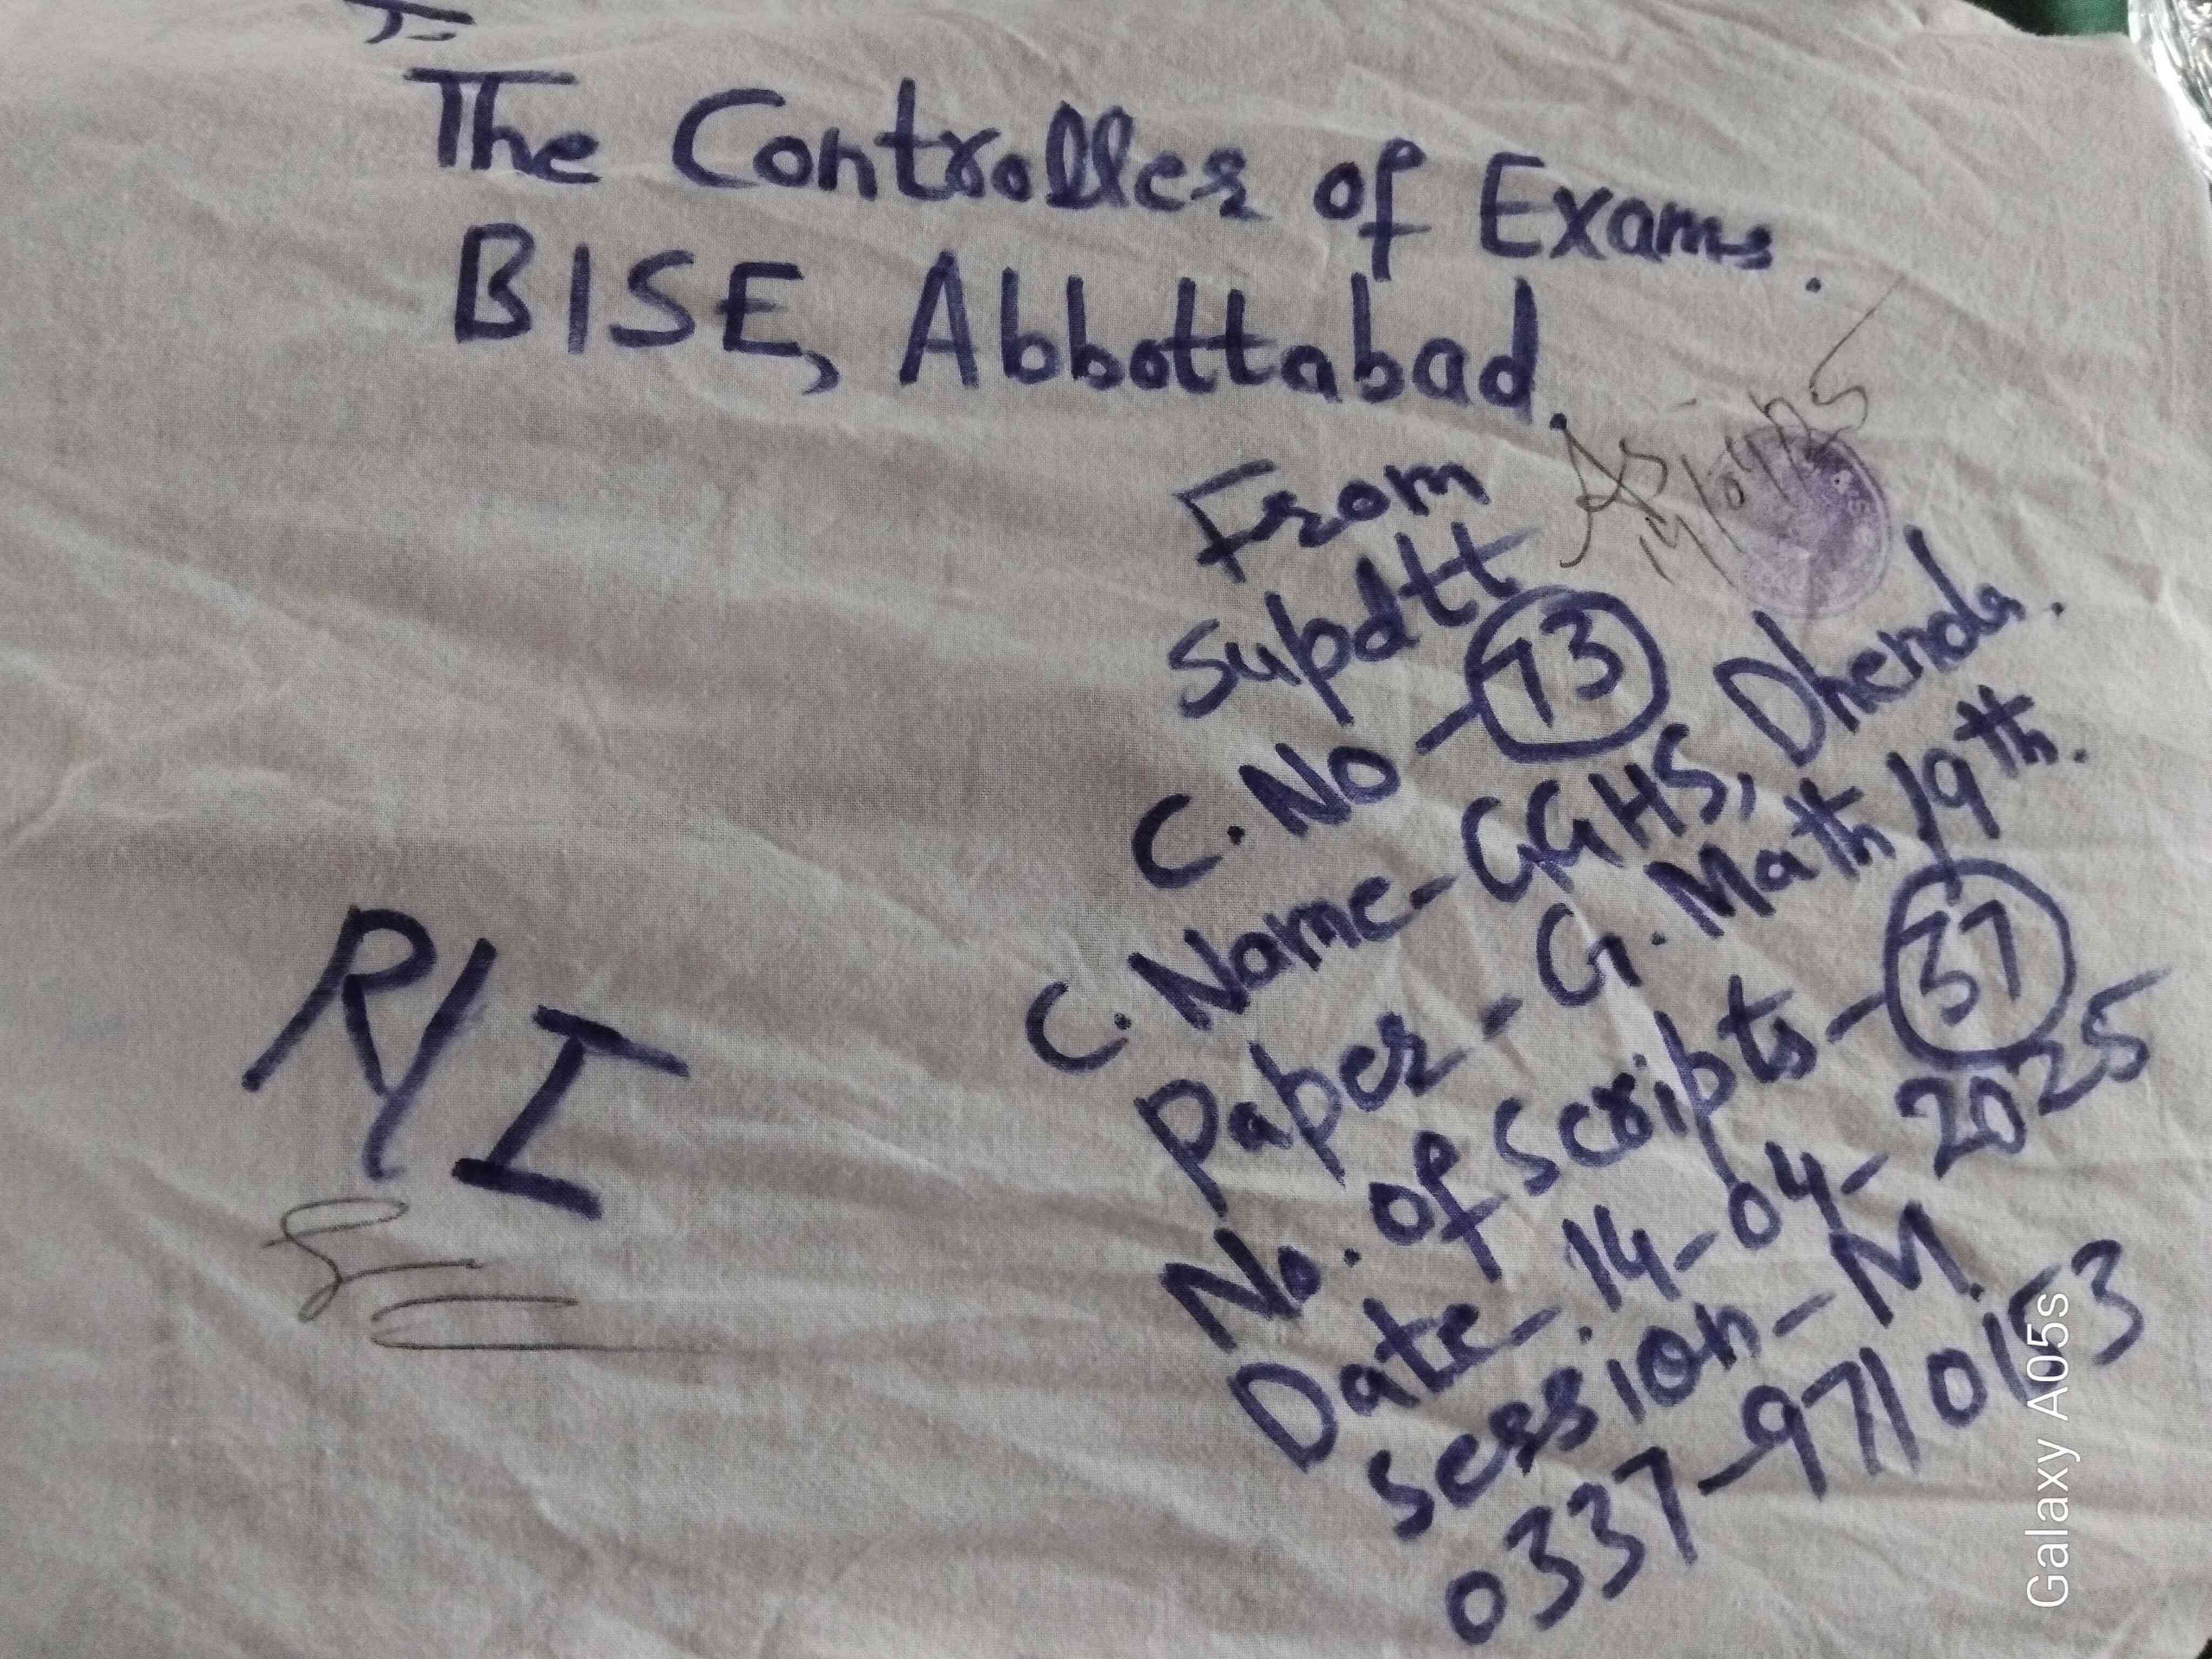 The Controller of Exams.
BISE, Abbottabad.
14/04/25
From
Supdtt
C. No - 73
C. Name - GGHS, Dhenda.
Paper - G. Math / 9th.
No. of Scripts - 37
Date - 14-04-2025
Session - M.
0337-9710153
R/I
Galaxy A05s